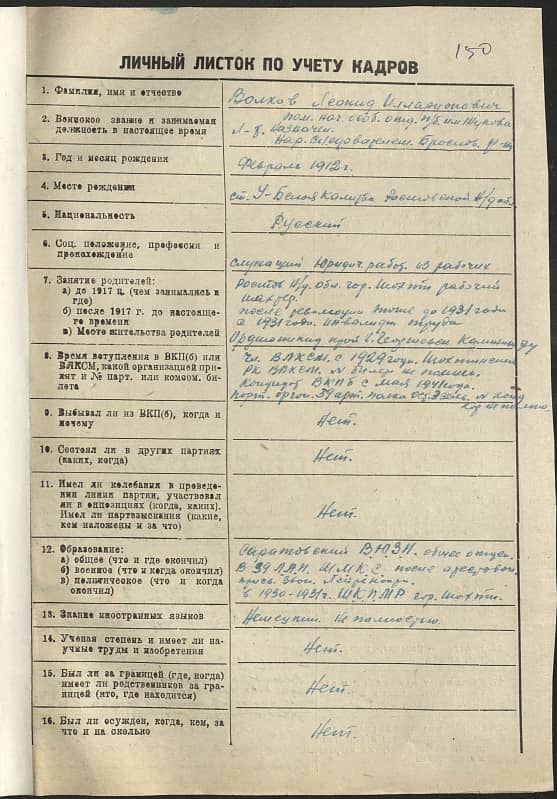 150
ЛИЧНЫЙ ЛИСТОК ПО УЧЕТУ КАДРОВ
1. Фамилия, имя и отчество
Волков Леонид Илларионович
2. Воинское звание и занимаемая
должность в настоящее время
пом. нач. особ. отд.
Л-т. Казначи.
Нар. Следователем.
3. Год и месяц рождения
Февраль 1912 г.
4. Место рождения
ст. У-Белая Калитва Ростовской н/д обл.
5. Национальность
Русский
6. Соц. положение, профессия и
происхождение
служащий Юридич. работ. из рабочих
7. Занятие родителей:
а) до 1917 ц. (чем занимались и
где)
б) после 1917 г. до настояще-
го времени
в) Место жительства родителей
Ростов н/д обл. гор. Шахты рабочий
шахтер.
после революции тоже до 1931 года
с 1931 года инвалид труда
8. Время вступления в ВКП(б) или
ВЛКСМ, какой организацией при-
нят и № парт. или комсом. би-
лета
чл. ВЛКСМ. с 1929 года. Шахтинским
РК ВЛКСМ. № билет не помню.
Кандидат ВКПБ с мая 1941 года.
9. Выбывал ли из ВКП(б), когда и
почему
Нет.
10. Состоял ли в других партиях
(каких, когда)
Нет.
11. Имел ли колебания в проведе-
нии линии партии, участвовал
ли в оппозициях (когда, каких).
Имел ли партвзыскания (какие,
кем наложены и за что)
Нет.
12. Образование:
а) общее (что и где окончил)
б) военное (что и когда окончил)
в) политическое (что и когда
окончил)
Саратовский В.Ю.З.И. общее отдел.
В 39 ЛАП. ШМКС. после
присв. звон. Лейтенант.
в 1930-1931 г. ШКПМР гор. Шахты.
13. Знание иностранных языков
Немецкий. Не полностью.
14. Ученая степень и имеет ли на-
учные труды и изобретения
Нет.
15. Был ли за границей (где, когда)
имеет ли родственников за гра-
ницей (кто, где находится)
Нет.
16. Был ли осужден, когда, кем, за
что и на сколько
Нет.